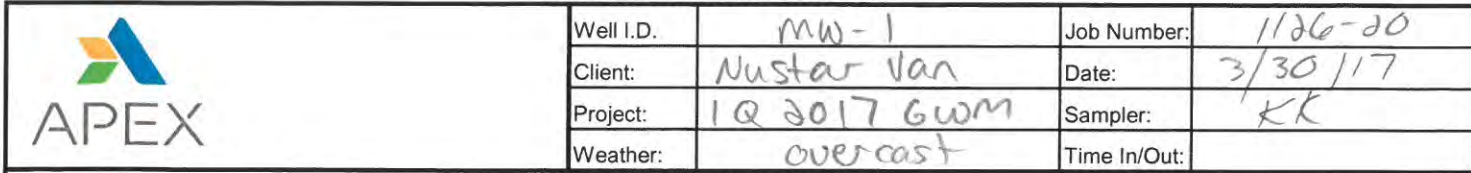 APEX
Well I.D. MW-1 Job Number: 1126-20
Client: Nustar Van Date: 3/30/17
Project: 1Q 2017 GWM Sampler: KK
Weather: overcast Time In/Out: